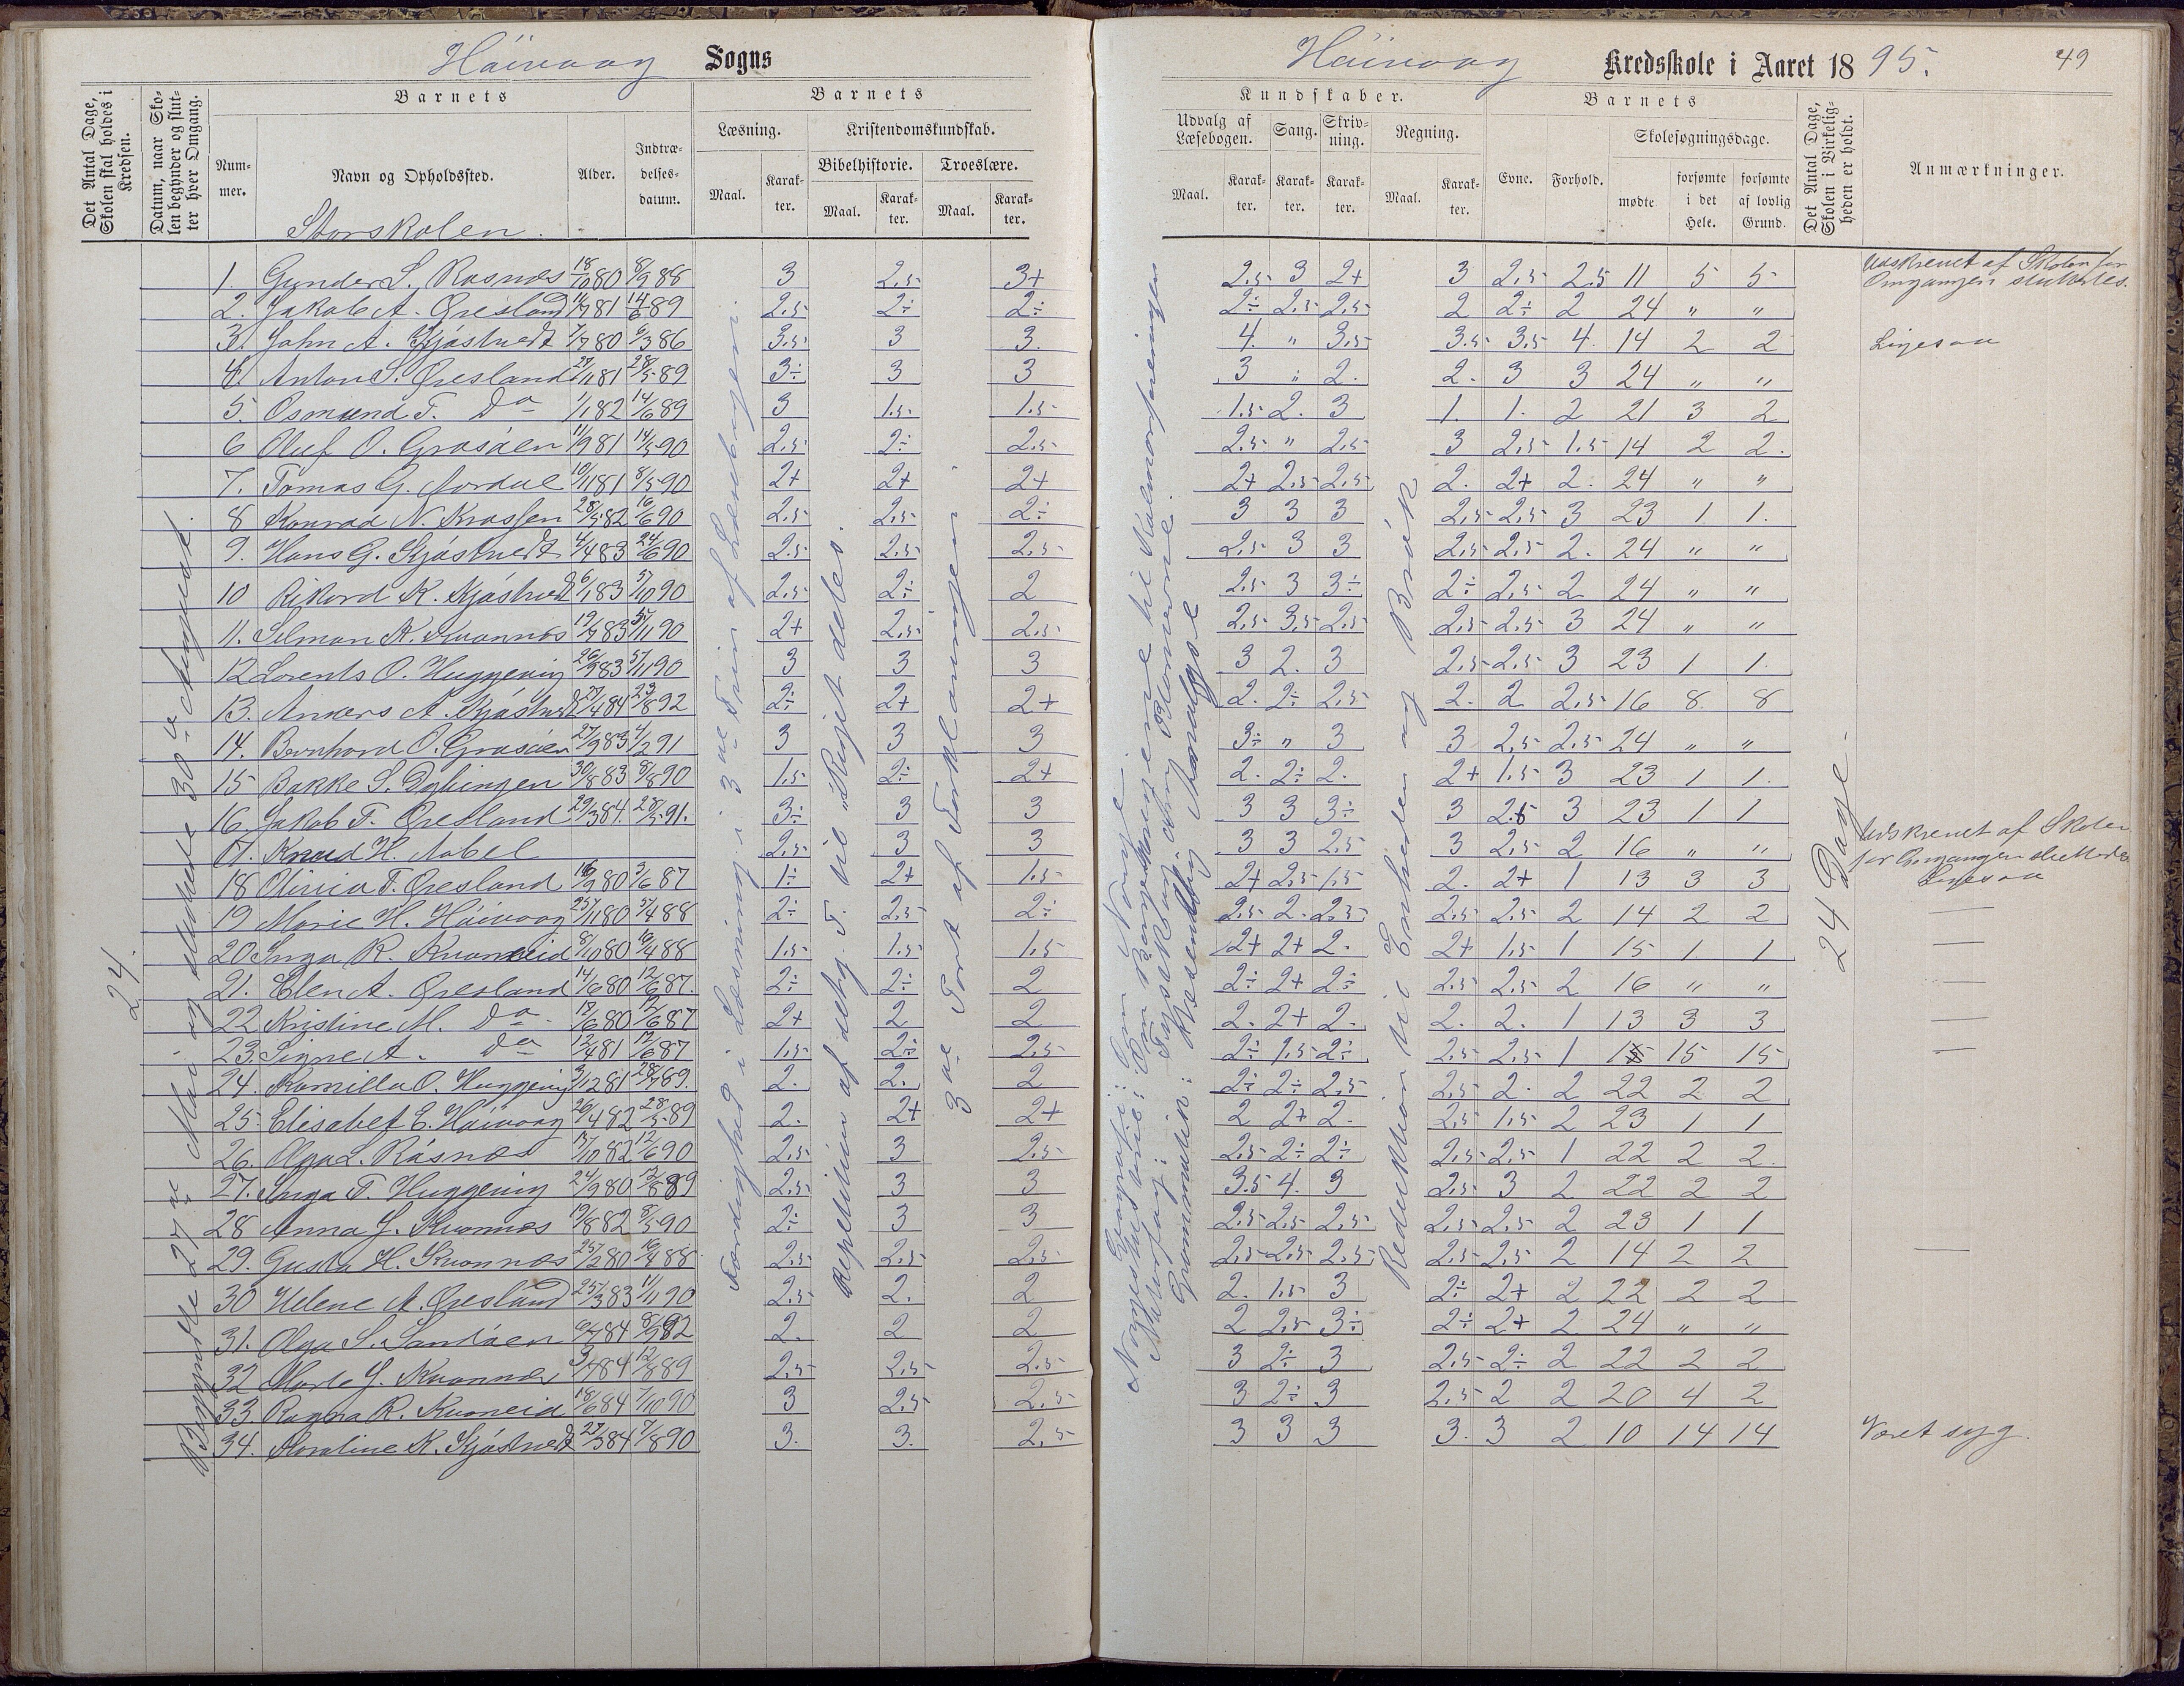 Häivaag Sogns
Det Antal Dage, Skolen skal holdes i Kredsen.
Datum, naar Skolen begynder og slutter hver Omgang.
Barnets
Nummer.
Navn og Opholdssted.
Alder.
Indtrædelsesdatum.
Barnets
Læsning.
Maal. Karakter.
Kristendomskundskab.
Bibelhistorie.
Maal. Karakter.
Troeslære.
Maal. Karakter.
Storskolen.
24.
Begyndte 27de Mai og sluttede 30te August.
Færdighed i Læsning i 3die Trin af Læsebogen.
Repetition af det ny. T. til "Riget deles.
3die Part af Forklaringen
1. Gunder S. Rosnæs 18/10 80 8/9 88 3 2,5 3+
2. Jakob A. Øresland 11/9 81 14/6 89 2,5 2÷ 2÷
3. John A. Kjöstvedt 7/7 80 6/3 86 3,5 3 3.
4. Anton S. Øresland 27/11 81 28/5 89 3÷ 3 3
5. Osmund T. Do 1/1 82 14/6 89 3 1,5 1,5
6 Oluf O. Grosåen 11/9 81 14/5 90 2,5 2÷ 2,5
7. Tomas G. Aardal 10/11 81 8/5 90 2+ 2+ 2+
8 Konrad N. Krossen 28/5 82 16/6 90 2,5 2,5 2÷
9. Hans G. Kjöstvedt 4/4 83 24/6 90 2,5 2,5 2,5
10 Rikard K. Kjöstvedt 6/1 83 5/10 90 2,5 2÷ 2
11. Selman K. Kvannes 19/7 83 5/11 90 2+ 2,5 2,5
12 Lorents O. Huggeviig 26/9 83 5/11 90 3 3 3
13. Anders A. Kjöstvedt 27/4 84 23/8 92 2÷ 2+ 2+
14. Bernhard O. Grosåen 27/9 83 4/2 91 3 3 3
15 Bakke S. Dybingen 30/8 83 8/8 90 1,5 2÷ 2+
16. Jakob T. Øresland 29/3 84. 28/5 91. 3÷ 3 3
17. Knud H. Aabel 2,5 3 3
18 Olivia T. Øresland 16/9 80 3/6 87 1÷ 2+ 1,5
19 Marie H. Häivaag 25/11 80 5/4 88 2÷ 2,5 2÷
20 Inga R. Kvanneid 8/10 80 10/4 88 1,5 1,5 1,5
21. Elen A. Øresland 14/6 80 12/6 87. 2÷ 2÷ 2
22 Kristine M. Do 13/6 80 12/6 87 2+ 2 2
23. Signe A. Do 12/4 81 12/6 87 1,5 2÷ 2,5
24. Kamilla O. Huggeviig 3/12 81 28/7 89. 2. 2. 2
25. Elisabet E. Häivaag 26/4 82 28/5 89 2. 2+ 2+
26. Olga L. Råsnæs 13/10 82 12/6 90 2,5 3 2,5
27. Inga T. Huggeviig 24/9 80 12/8 89 2,5 3 3
28 Anna J. Kvannes 19/8 82 8/5 90 2÷ 3 3
29. Gusta H. Kvannæs 25/2 80 10/4 88 2,5 2,5 2,5
30 Helene A. Øresland 25/3 83 11/11 90 2,5 2. 2
31. Olga S. Sandåen 6/7 84 8/9 92 2. 2 2
32 Marte J. Kvannes 3/4 84 12/8 89 2,5 2,5 2,5
33. Ragna R. Kvaneid 18/6 84 7/10 90 3 2,5 2,5
34. Karoline K. Kjöstvedt 29/3 84 7/8 90 3. 3. 2,5
Häivaag Kredsskole i Aaret 1895. 49
Kundskaber.
Udvalg af Læsebogen.
Maal. Karakter.
Sang.
Karakter.
Skrivning.
Karakter.
Regning.
Maal. Karakter.
Barnets
Evne. Forhold.
Skolesøgningsdage.
mødte
forsømte i det Hele.
forsømte af lovlig Grund.
Det Antal Dage, Skolen i Virkeligheden er holdt.
Anmærkninger.
Geografi: Om Norge.
Norgeshistorie: Om Kongerne til Kalmarforeningen
Naturfag:
Grammatik: Analyse
Reduktion til Enheden og Brök
24 Dage.
2,5 3 2+ 3 2,5 2,5 11 5 5 Udskrevet af Skolen før Omgangen sluttedes.
2÷ 2,5 2,5 2 2÷ 2 24 " "
4. " 3,5 3,5 3,5 4. 14 2 2 Ligesaa
3 " 2. 2. 3 3 24 " "
1,5 2. 3 1. 1. 2 21 3 2
2,5 " 2,5 3 2,5 1,5 14 2 2.
2+ 2,5 2,5 2. 2+ 2. 24 " "
3 3 3 2,5 2,5 3 23 1. 1.
2,5 3 3 2,5 2,5 2. 24 " "
2,5 3 3÷ 2÷ 2,5 2 24 " "
2,5 3,5 2,5 2,5 2,5 3 24 " "
3 2. 3 2,5 2,5 3 23 1 1.
2. 2÷ 2,5 2. 2 2,5 16 8 8
3÷ " 3 3 2,5 2,5 24 " "
2. 2÷ 2. 2+ 1,5 3 23 1 1.
3 3 3÷ 3 2,5 3 23 1 1
3 3 2,5 3 2,5 2 16 " " Udskrevet af Skolen før Omgangen sluttedes
2+ 2,5 1,5 2. 2+ 1 13 3 3 Ligesaa
2,5 2. 2,5 2,5 2,5 2 14 2 2 —
2+ 2+ 2. 2+ 1,5 1 15 1 1 —
2÷ 2+ 2÷ 2,5 2,5 2 16 " " —
2. 2+ 2. 2. 2. 1 13 3 3 —
2÷ 1,5 2÷ 2,5 2,5 1 15 15 15 —
2÷ 2÷ 2,5 2,5 2. 2 22 2 2
2 2+ 2. 2,5 1,5 2 23 1 1
2,5 2÷ 2÷ 2,5 2,5 1 22 2 2.
3,5 4. 3 2,5 3 2 22 2 2
2,5 2,5 2,5 2,5 2,5 2 23 1 1
2,5 2,5 2,5 2,5 2,5 2 14 2 2 —
2. 1,5 3 2÷ 2+ 2 22 2 2
2 2,5 3÷ 2÷ 2+ 2 24 " "
3 2÷ 3 2,5 2÷ 2 22 2 2
3 2÷ 3 2,5 2 2 20 4 2
3 3 3 3. 3 2 10 14 14 Været syg.